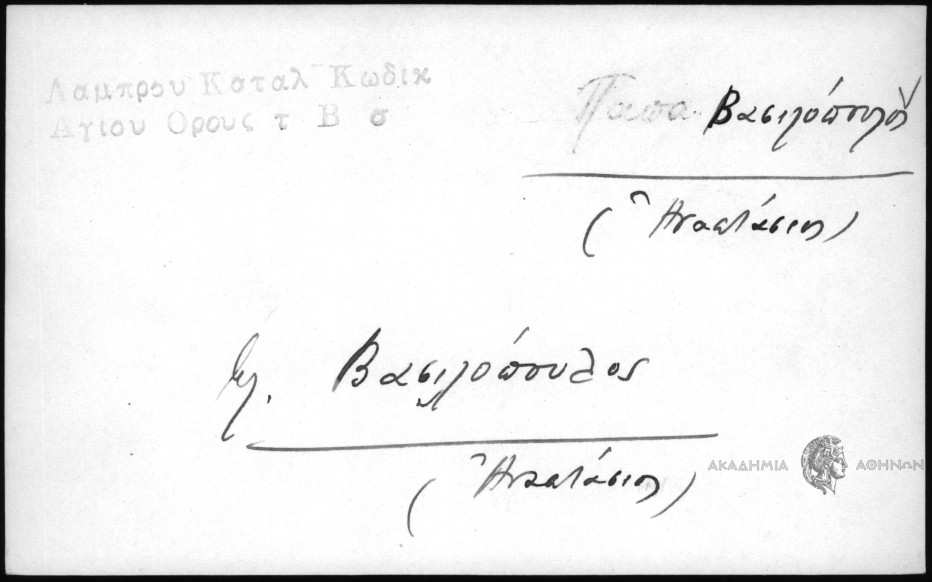 Λαμπρου Καταλ Κωδικ
Αγιου Ορους τ Β σ
Παπα Βασιλόπουλος
(Ἀναστάσιος)
βλ. Βασιλόπουλος
(Ἀναστάσιος)
ΑΚΑΔΗΜΙΑ ΑΘΗΝΩΝ